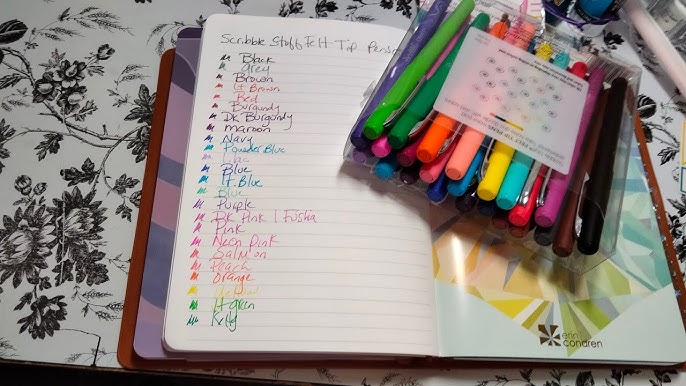 Scribble Stuff Felt Tip Pens
Black
Grey
Brown
Lt Brown
Red
Burgundy
Dk Burgundy
maroon
Navy
Powder Blue
Lilac
Blue
lt. Blue
Blue
Purple
DK Pink / Fushia
Pink
Neon Pink
Salmon
Peach
orange
Yellow
lt green
Kelly
erin
condren